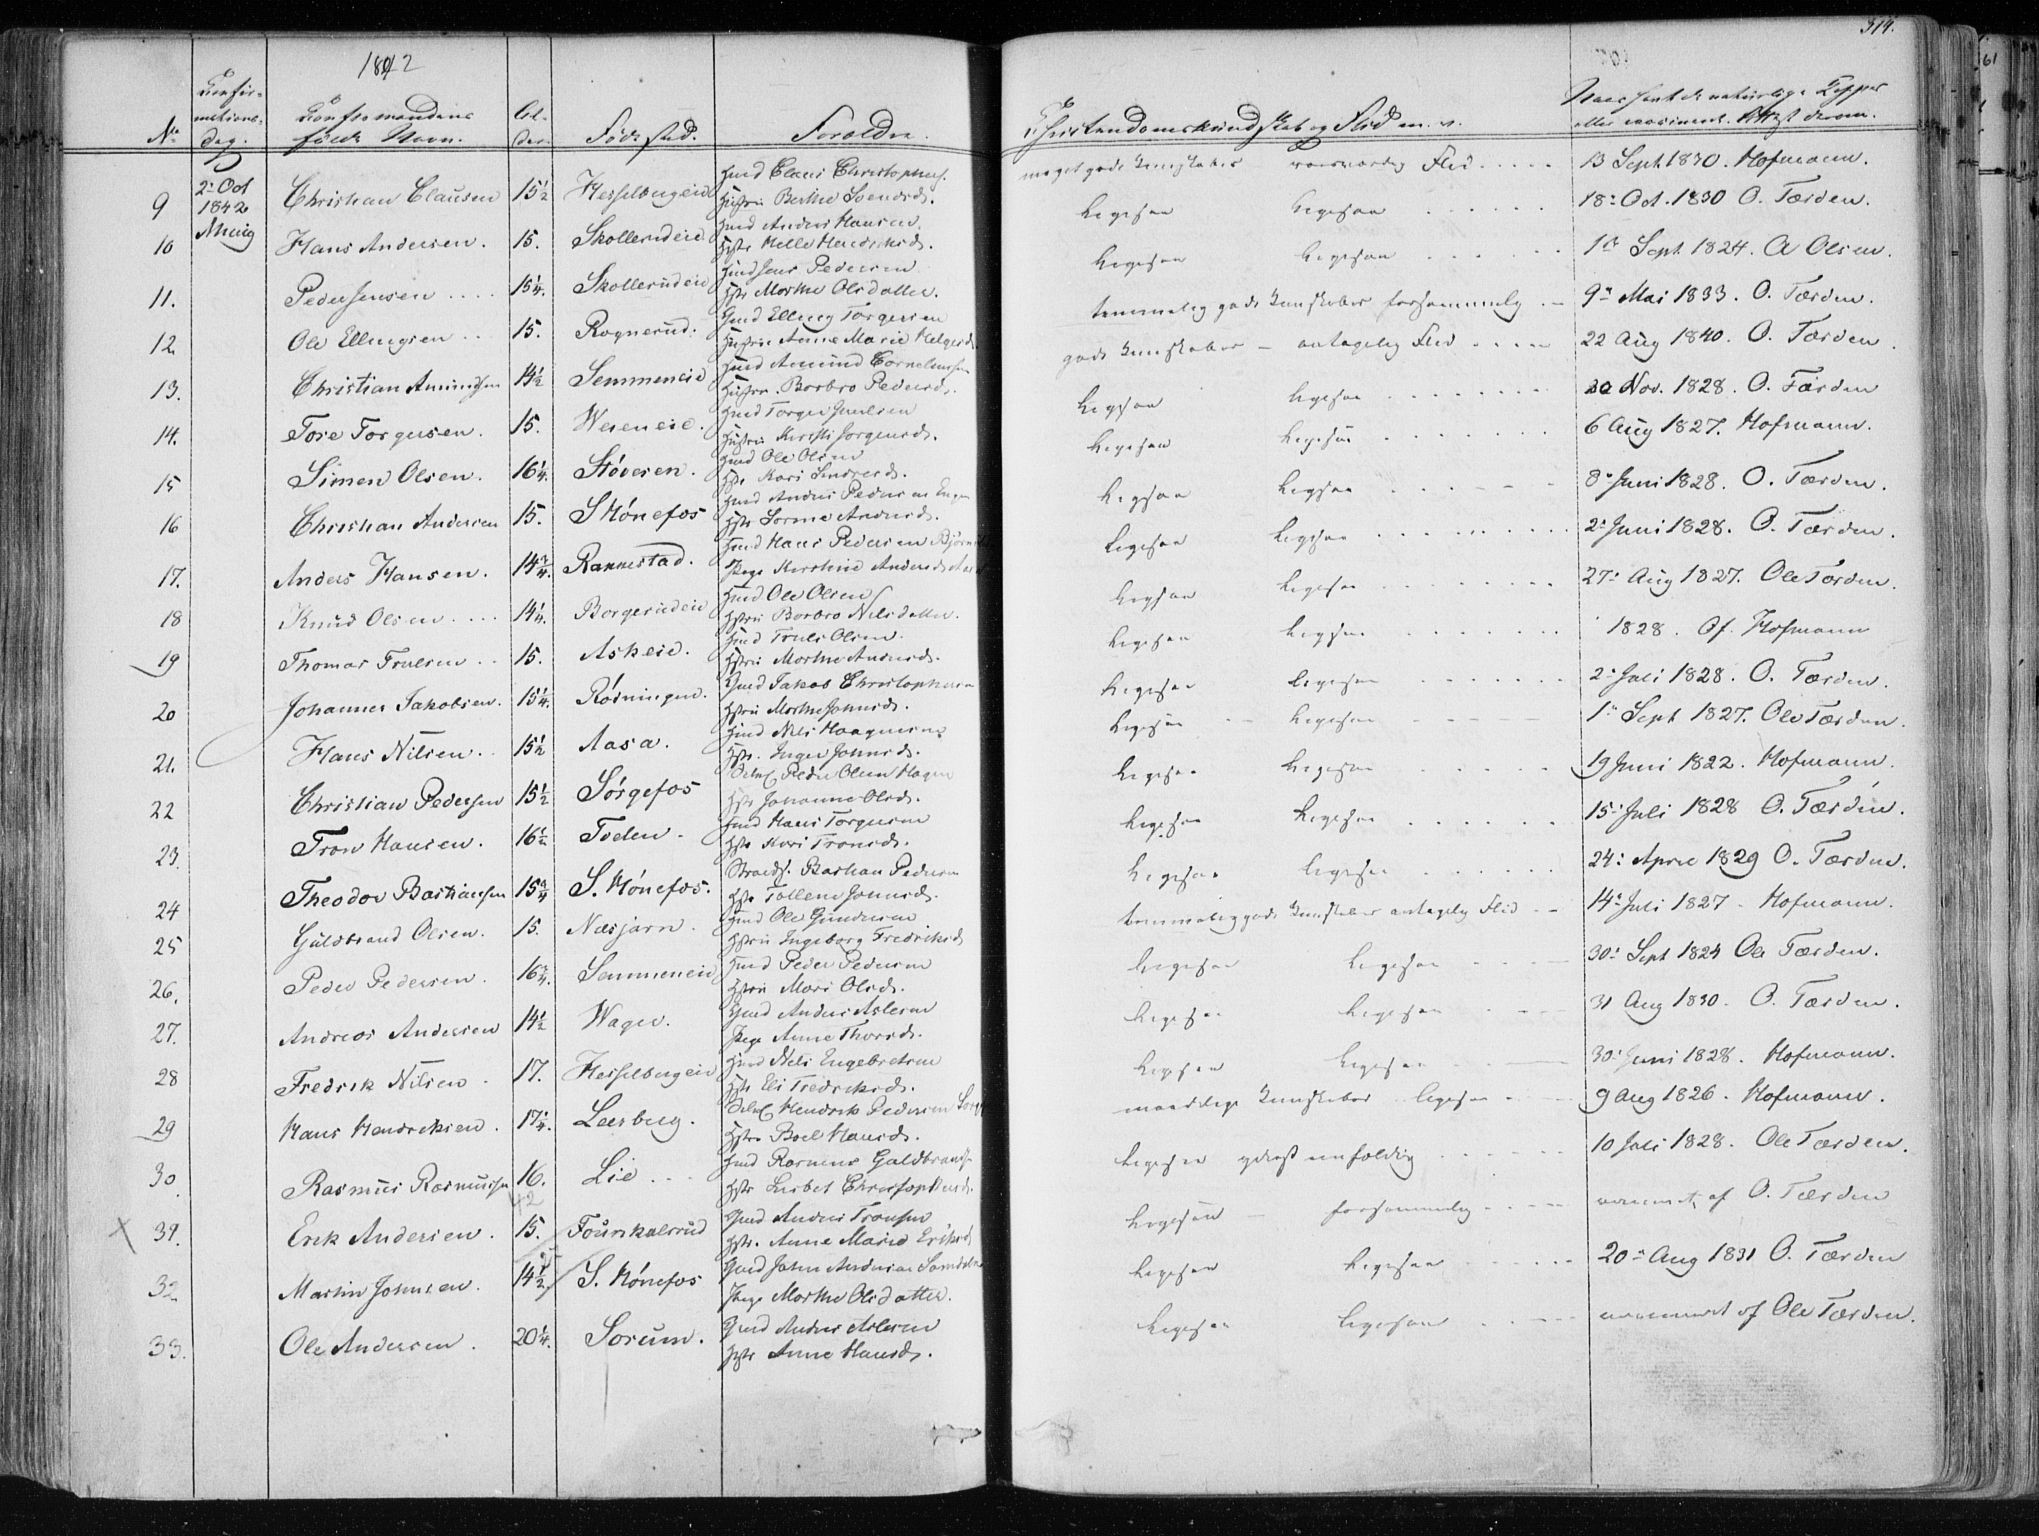 1842
314.
61
No
Confirmations-
dag.
Confirmandens
fulde Navn.
Al-
der.
Födested.
Forældre.
Christendomskundskab og Flid m. v.
Naar havt de naturlige Kopper
eller vaccineret. Attest derom.
9 2. Oct 1842 Christian Clausen 15½ Hesselbergeie Huusmd Claus Christophers. Hustru Berthe Svendsd. meget gode Kundskaber roesværdig Flid 13 Sept 1830. Hofmann.
10 Hans Andersen. 15. Skollerudeie Anders Hansen Helle Hendriksd. ligesaa ligesaa 18. Oct. 1830 O. Tærden.
11. Peder Jensen 15¼. Skollerudeie Jens Pedersen Marthe Olsdatter. ligesaa ligesaa 10 Sept 1824. A Olsen.
12 Ole Ellingsen 15. Rognerud. Elling Torgersen Hustru Anne Marie Helgesd. temmelig gode Kundskaber forsømmelig 9. Mai 1833. O. Tærden.
13. Christian Amundsen 14½ Semmeneie Amund Corneliussen Hustru Barbro Pedersd. gode Kundskaber antagelig Flid 22 Aug 1840. O. Tærden
14. Tore Torgersen. 15. Weieneie. Torger Hustru Kirsti Jorgensd. ligesaa ligesaa 20 Nov. 1828. O. Tærden
15 Simen Olsen. 16¼. Støveren. Ole Olsen Kari ligesaa ligesaa 6 Aug 1827. Hofmann.
16 Christian Andersen 15. S Hönefos Anders Pedersen Engen Andersd. ligesaa ligesaa 8. Juni 1828. O. Tærden.
17. Anders Hansen. 14¾. Rannestad. Hans Pedersen Pige Kirstine Andersd. ligesaa ligesaa 2. Juni 1828. O. Tærden.
18 Knud Olsen 14¼. Borgerudeie Ole Olsen Hustru Barbro Nilsdatter. ligesaa ligesaa 27. Aug 1827. Ole Tærden.
19 Thomas Trulsen 15. Askeie. Truls Olsen. Marthe Andersd. ligesaa ligesaa 1828. Of. Hofmann
20 Johannes Jakobsen. 15¼. Røsningen. Jakob Christophersen Marthe Johnsd. ligesaa ligesaa 2. Juli 1828. O. Tærden.
21. Hans Nilsen. 15½ Aasa. Nils Haagensen Inger Johnsd. ligesaa ligesaa 1. Sept 1827. Ole Tærden.
22 Christian Pedersen 15½ Sörgefos Peder Olsen Hagen Johanne Olsd. ligesaa ligesaa 19 Juni 1822. Hofmann.
23. Tron Hansen. 16½ Toelen. Hans Torgersen Kari Tronsd. ligesaa ligesaa 15. Juli 1828 O. Tærden.
24 Theodor Bastiansen 15¾ S. Hönefos. Bastian Pedersen Johnsd. ligesaa ligesaa 24. April 1829 O. Tærden.
25 Guldbrand Olsen. 15. Næsjarn. Ole Gundersen Ingeborg Fredriksd. temmelig gode Kundskaber antagelig Flid 14. Juli 1827 Hofmann.
26. Peder Pedersen. 16¾. Semmeneie Peder Pedersen Mari Olsd. ligesaa ligesaa 30. Sept 1824 Ole Tærden.
27. Andreas Andersen 14½ Wager. Anders Aslesen Pige Anne Thorsd. ligesaa ligesaa 31 Aug 1830. O. Tærden.
28 Fredrik Nilsen 17. Hesselbergeie Nils Engebretsen Eli Fredriksd. ligesaa ligesaa 30. Juni 1828. Hofmann.
29 Hans Hendriksen. 17¼. Leerberg. Hendrik Pedersen Boel Hansd. maadelige Kundskaber ligesaa 9 Aug 1826. Hofmann.
30 Rasmus Rasmussen 16. Lie Rasmus Guldbrands. Lisbet Christophersd. ligesaa yderst eenfoldig 10 Juli 1828. Ole Tærden.
42
X 31. Erik Andersen. 15. Anders Tronsen Anne Marie Eriksd. ligesaa forsømmelig vaccineret af O. Tærden
32 Martin Johnsen. 14½ S. Hönefos John Andersen Pige Marthe Olsdatter. ligesaa ligesaa 20. Aug 1831 O. Tærden
33. Ole Andersen. 20¼. Sorum. Anders Aslesen Anne Hansd. ligesaa ligesaa vaccineret af Ole Tærden.